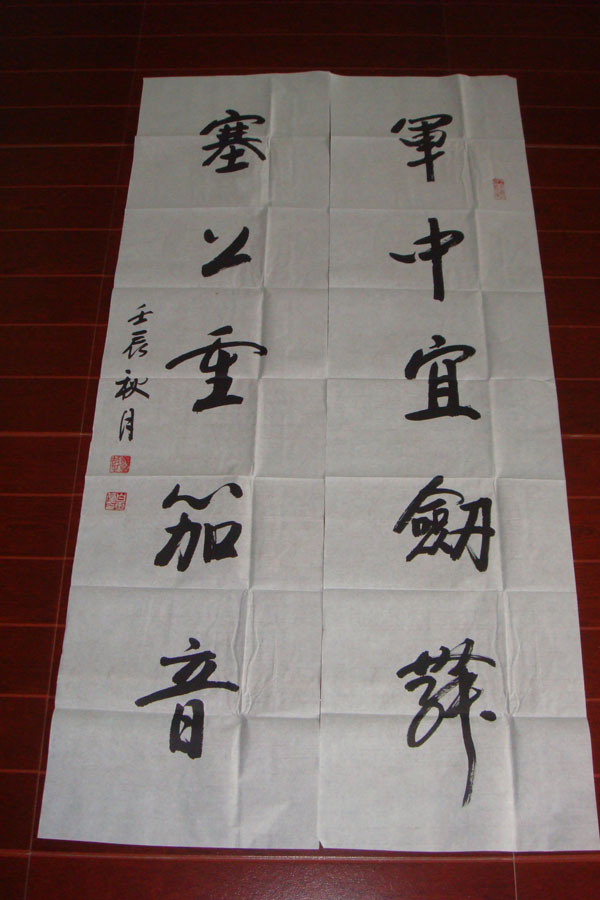 軍中宜劔舞
塞上重笳音
壬辰秋月